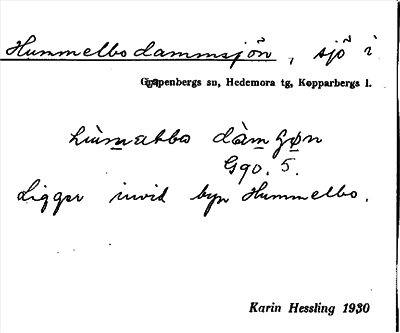 Hummelbodammsjön, sjö i
Grapenbergs sn, Hedemora tg, Kopparbergs l.
hùmabbo dàmʃøn
Gqo. 5.
Ligger invid byn Hummelbo.
Karin Hessling 1930